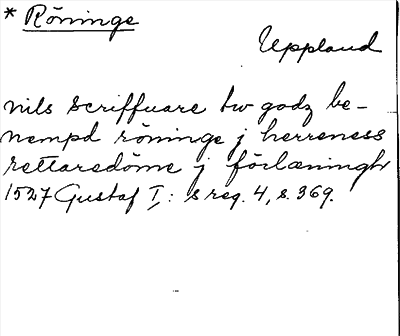 * Röninge
Uppland
nils scriffuare tw godz be-
nempd röninge j herreness
rettaredöme j förlæningh
1527 Gustaf I: s reg. 4, s. 369.